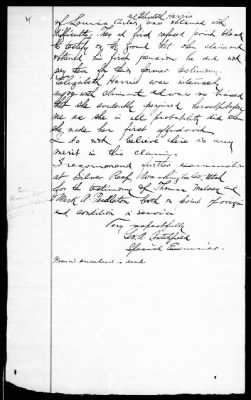 4
Elizabeth Harris
of Louisa Carley was obtained with
difficulty. They at first refused point blank
to testify on the ground that when claimant
obtained his first pension he did not
pay them for their former testimony.
Elizabeth Harris was intensely
angry with claimant and was so biased
that she evidently perjured herself before
me as she in all probability did when
she made her first affidavit.
I do not believe there is any
merit in this claim.
I recommend further examination
at Silver Reef Washington Co. Utah
for the testimony of Thomas and
Mark A. Pendleton both on point of origin
and condition in service
Very respectfully
Special Examiner.
is dead.